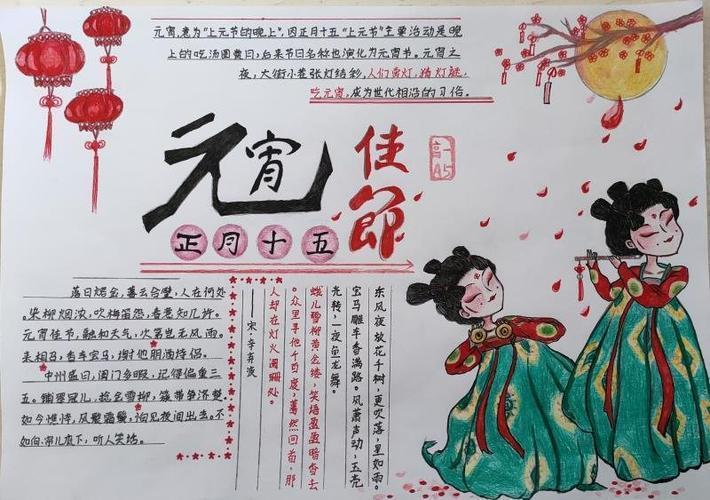 元宵,意为“上元节的晚上”,因正月十五“上元节”主要活动是晚
上的吃汤圆赏月,后来节日名称也演化为元宵节。元宵之
夜,大街小巷张灯结彩,人们赏灯,猜灯谜,
吃元宵,成为世代相沿的习俗。
元宵
佳節
高一
A5
正月十五
落日熔金,暮云合璧,人在何处。
染柳烟浓,吹梅笛怨,春意知几许。
元宵佳节,融和天气,次第岂无风雨。
来相召,香车宝马,谢他酒朋诗侣。
中州盛日,闺门多暇,记得偏重三
五。铺翠冠儿,捻金雪柳,簇带争济楚。
如今憔悴,风鬟霜鬓,怕见夜间出去。不
如向帘儿底下,听人笑语。
东风夜放花千树,更吹落,星如雨。
宝马雕车香满路。风萧声动,玉壳
光转,一夜鱼龙舞。
蛾儿雪柳黄金缕,笑语盈盈暗香去
。众里寻他千百度,蓦然回首,那
人却在灯火阑珊处。
——宋·辛弃疾